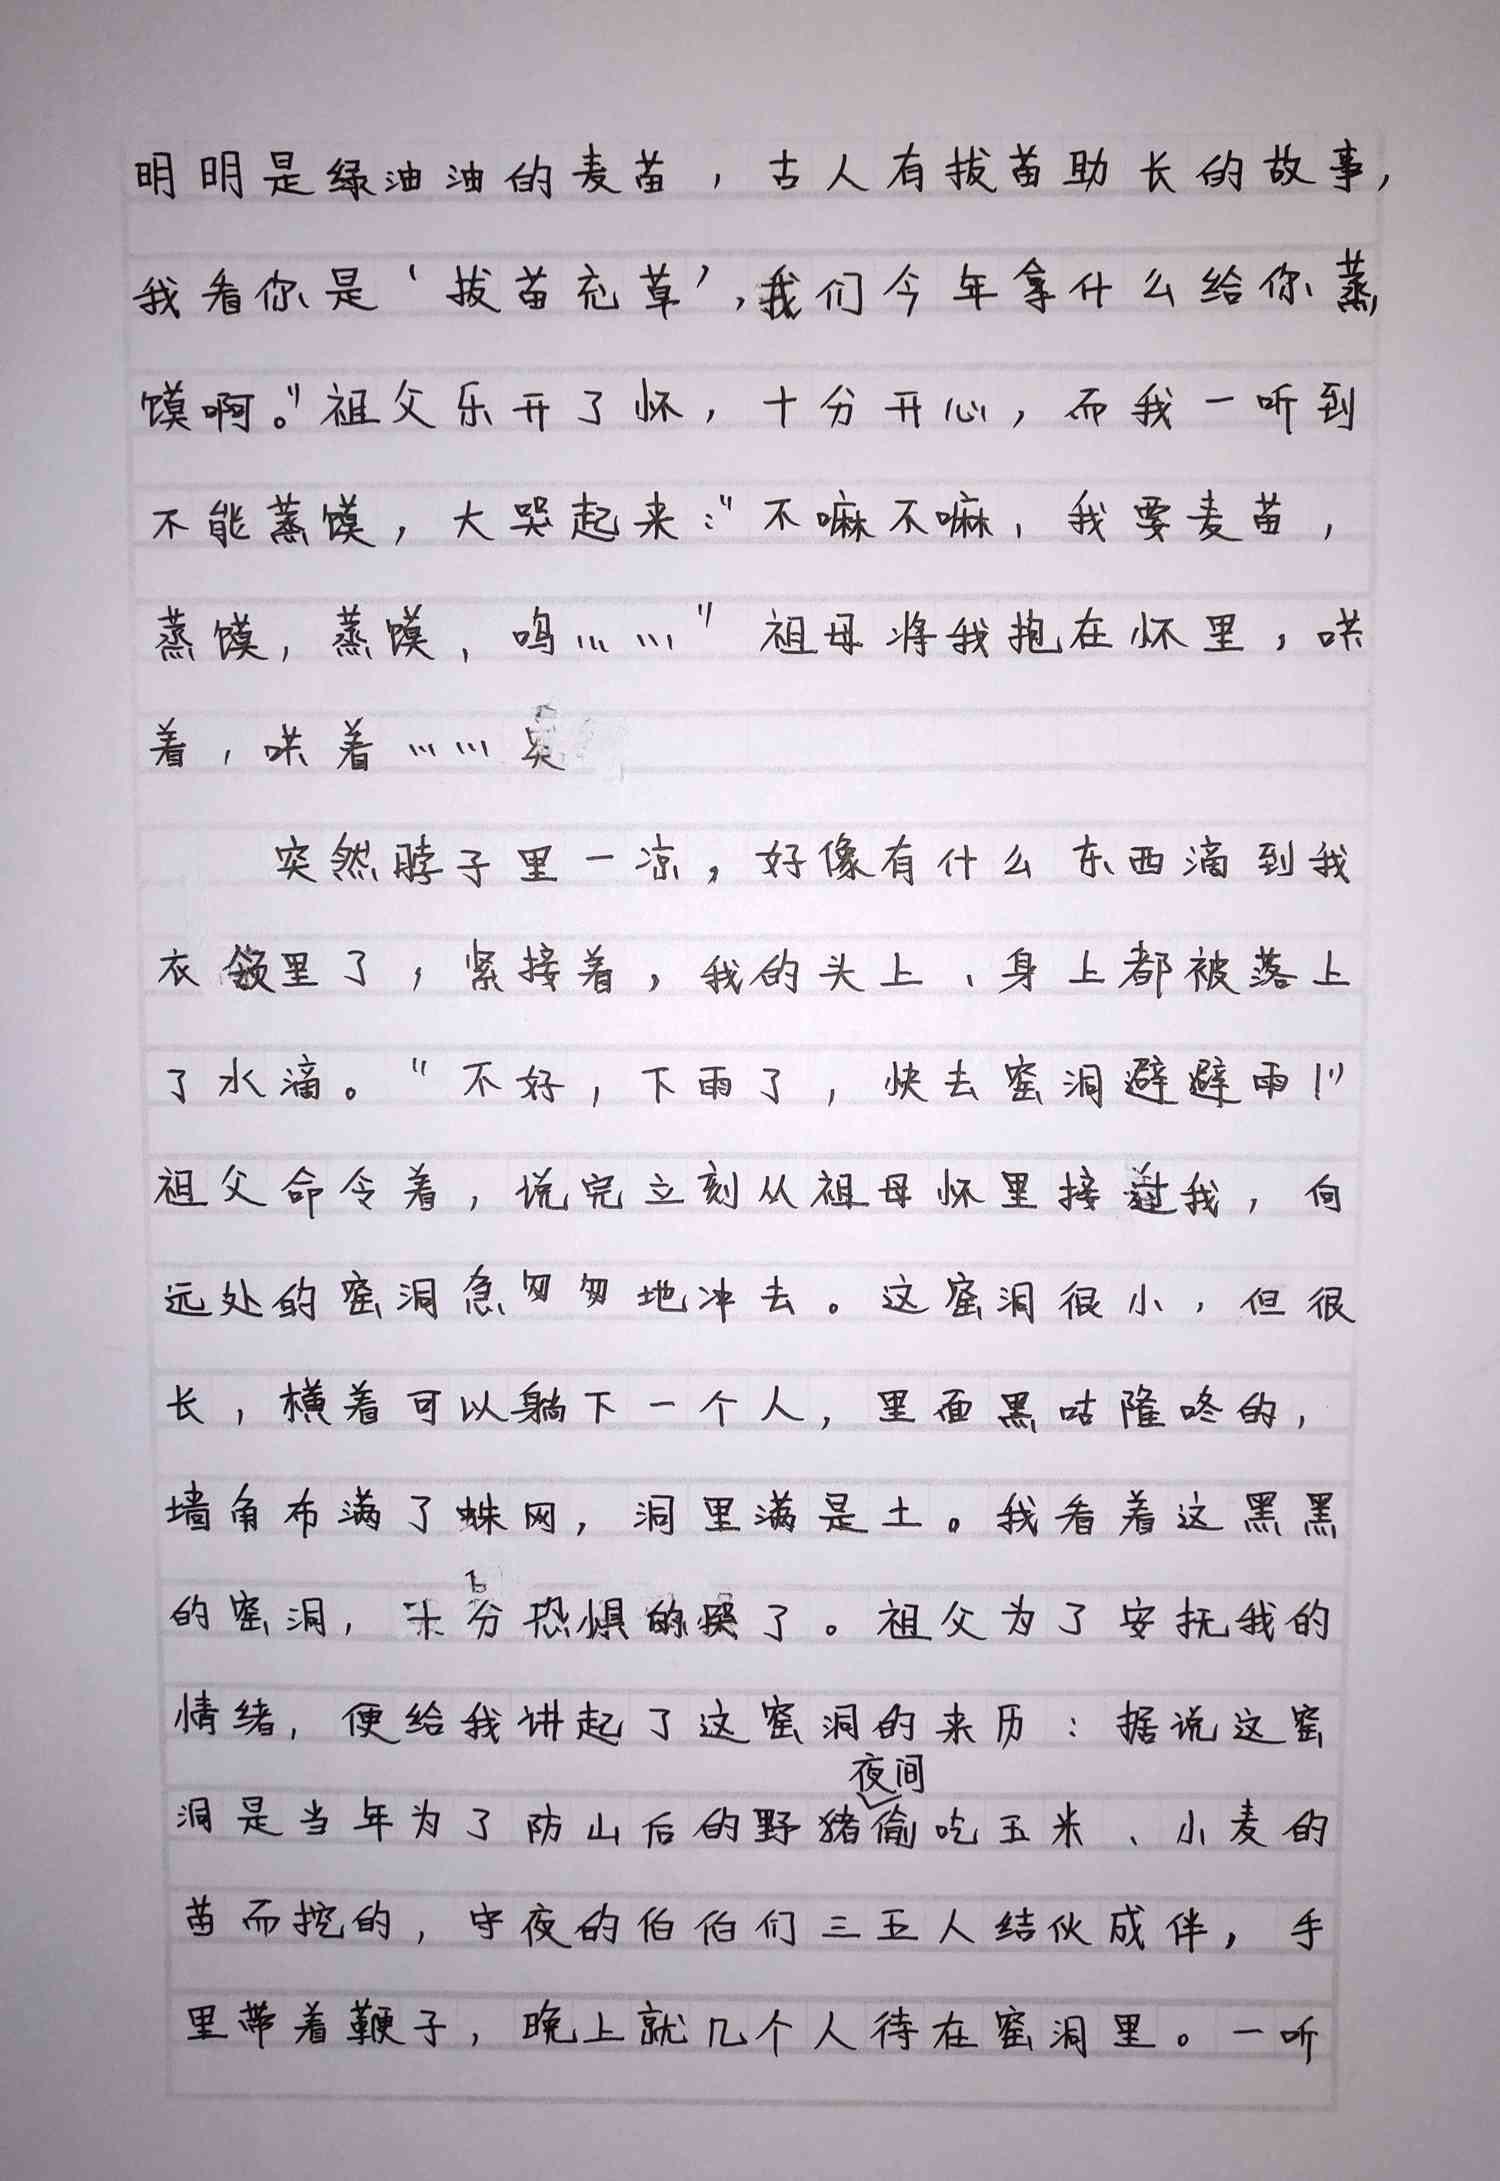 明明是绿油油的麦苗，古人有拔苗助长的故事，
我看你是‘拔苗充草’，我们今年拿什么给你蒸
馍啊。”祖父乐开了怀，十分开心，而我一听到
不能蒸馍，大哭起来：“不嘛不嘛，我要麦苗，
蒸馍，蒸馍，呜……”祖母将我抱在怀里，哄
着，哄着……
突然脖子里一凉，好像有什么东西滴到我
衣领里了，紧接着，我的头上、身上都被落上
了水滴。“不好，下雨了，快去窑洞避避雨！”
祖父命令着，说完立刻从祖母怀里接过我，向
远处的窑洞急匆匆地冲去。这窑洞很小，但很
长，横着可以躺下一个人，里面黑咕隆咚的，
墙角布满了蛛网，洞里满是土。我看着这黑黑
的窑洞，十分恐惧的哭了。祖父为了安抚我的
情绪，便给我讲起了这窑洞的来历：据说这窑
洞是当年为了防山后的野猪夜间偷吃玉米、小麦的
苗而挖的，守夜的伯伯们三五人结伙成伴，手
里带着鞭子，晚上就几个人待在窑洞里。一听